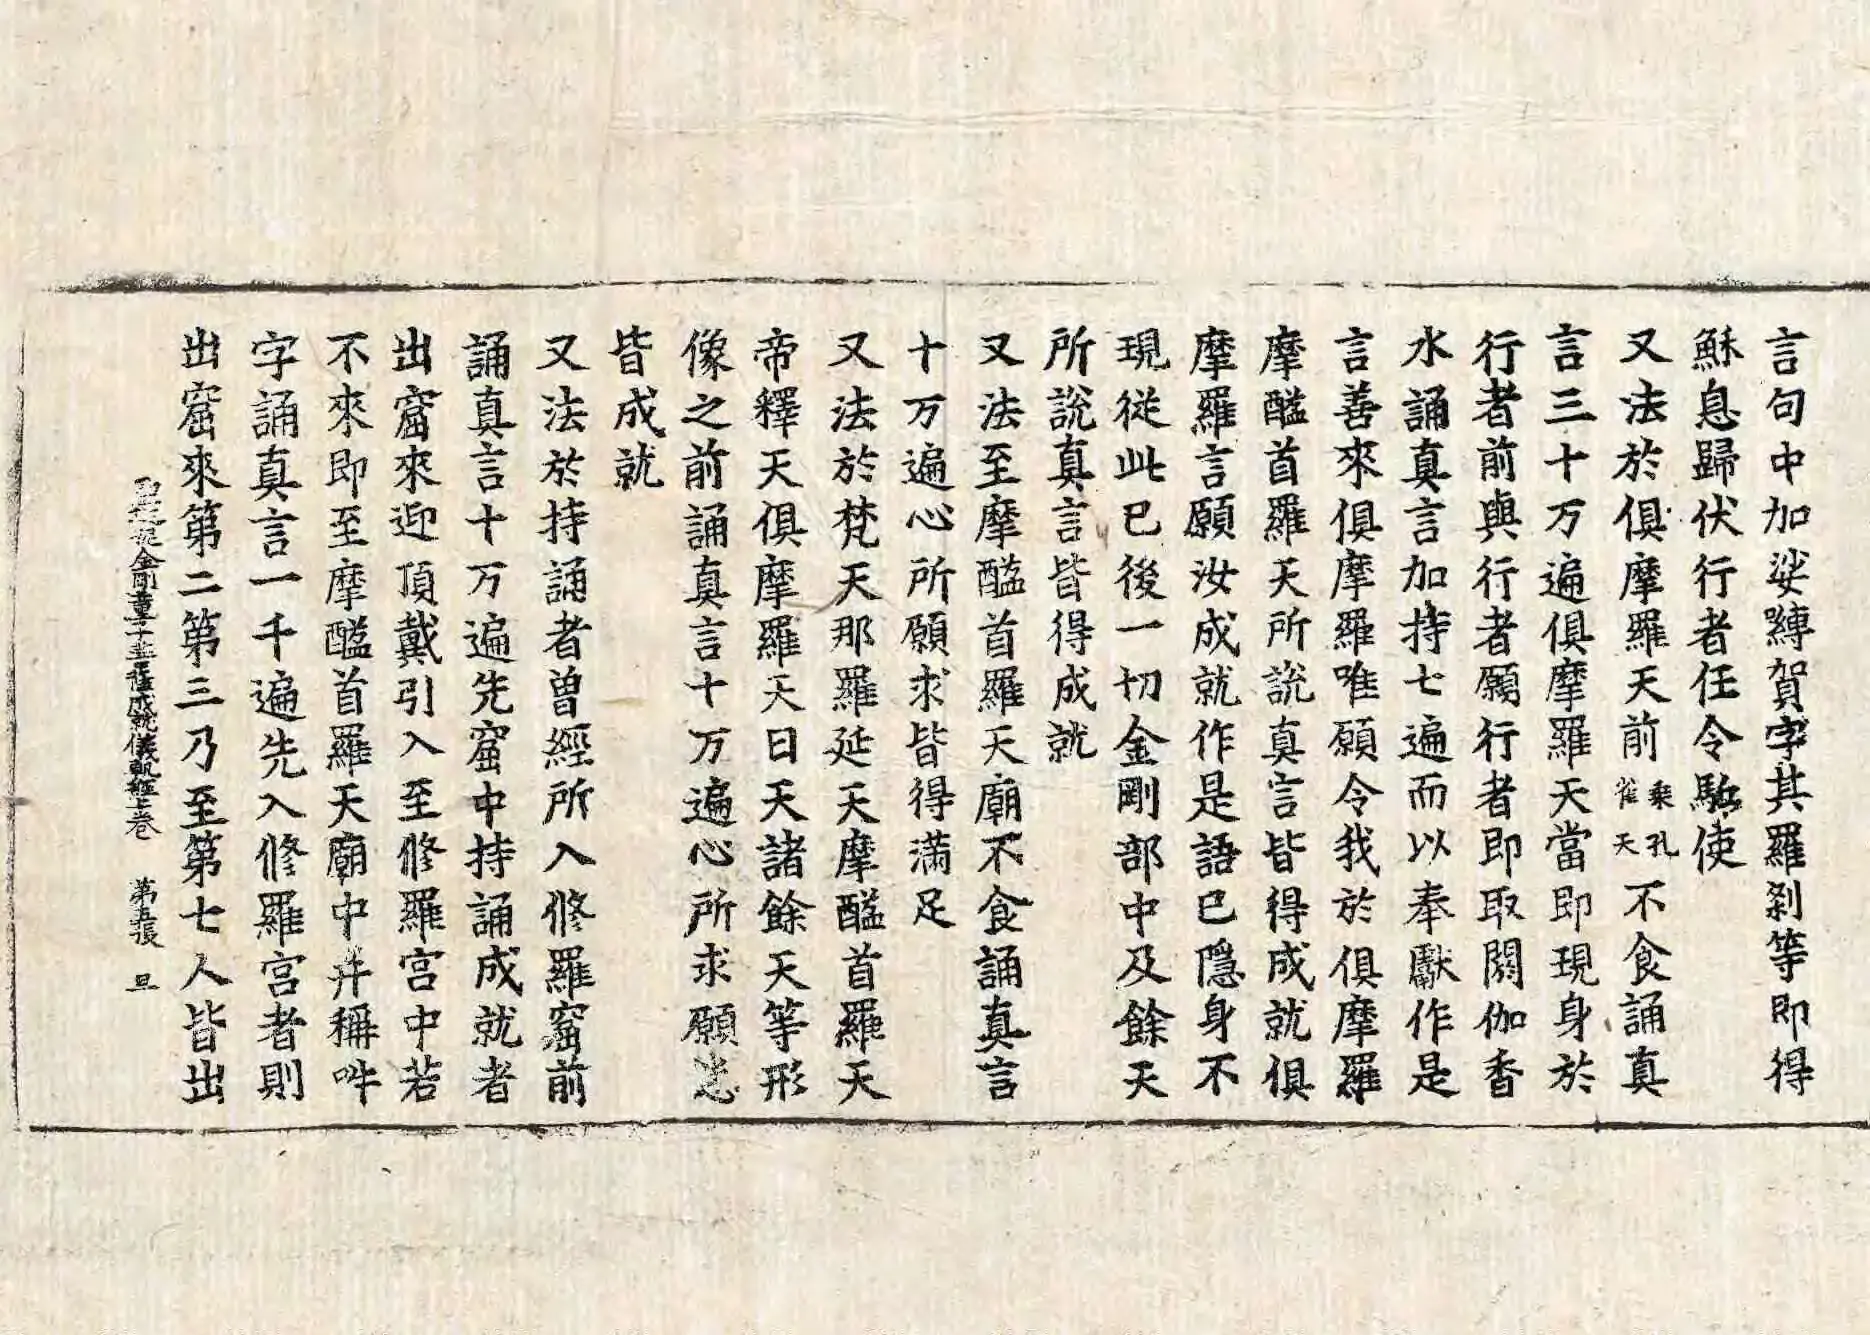 言句中加娑嚩賀字其羅剎等即得
穌息歸伏行者任令駈使
又法於俱摩羅天前乘孔雀天不食誦真
言三十万遍俱摩羅天當即現身於
行者前與行者願行者即取閼伽香
水誦真言加持七遍而以奉獻作是
言善來俱摩羅唯願令我於俱摩羅
摩醯首羅天所說真言皆得成就俱
摩羅言願汝成就作是語已隱身不
現從此已後一切金剛部中及餘天
所說真言皆得成就
又法至摩醯首羅天廟不食誦真言
十万遍心所願求皆得滿足
又法於梵天那羅延天摩醯首羅天
帝釋天俱摩羅天日天諸餘天等形
像之前誦真言十万遍心所求願悉
皆成就
又法於持誦者曾經所入修羅窟前
誦真言十万遍先窟中持誦成就者
出窟來迎頂戴引入至修羅宮中若
不來即至摩醯首羅天廟中并稱吽
字誦真言一千遍先入修羅宮者則
出窟來第二第三乃至第七人皆出
金剛童子菩薩成就儀軌經上卷 第五張